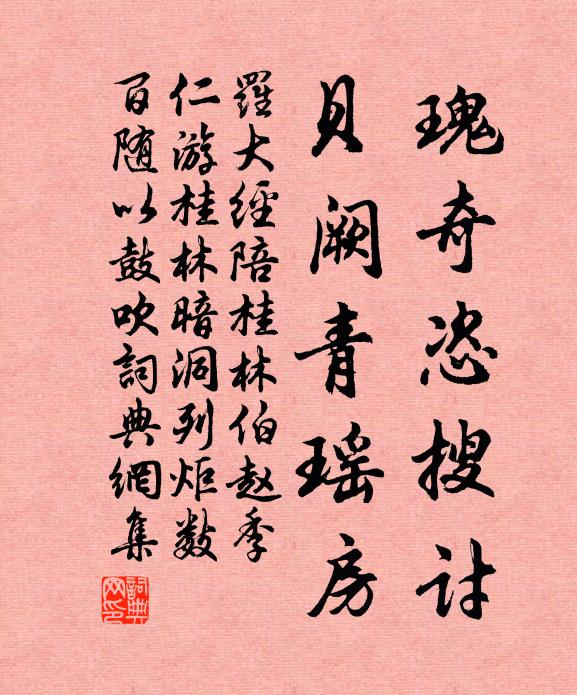 瑰奇恣搜讨
贝阙青瑶房
羅大经陪桂林伯赵季
仁游桂林暗洞列炬数
百随以鼓吹詞典網集
詞典网印